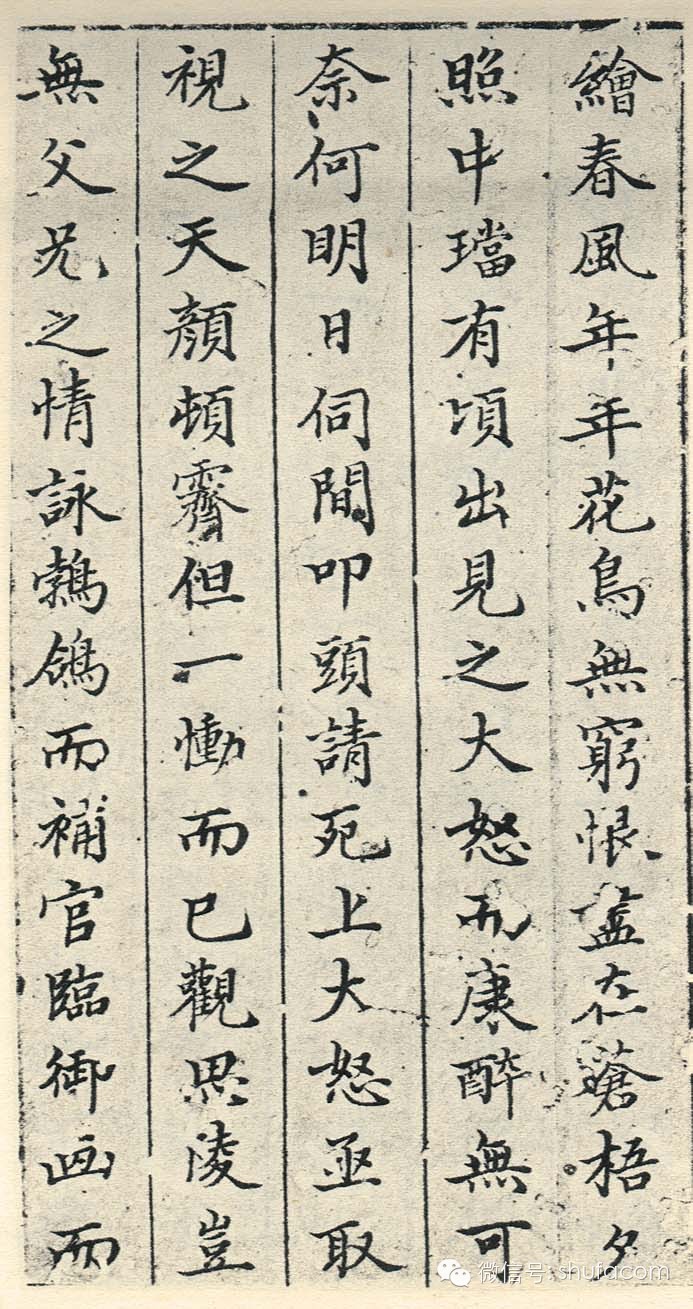 繪春風年年花鳥無窮恨盡在蒼梧夕
照中璫有頃出見之大怒而康醉無可
奈何明日伺間叩頭請死上大怒亟取
視之天顔頓霽但一慟而已觀思陵豈
無父兄之情詠鶺鴒而補官臨御画而
微信号: shufacom